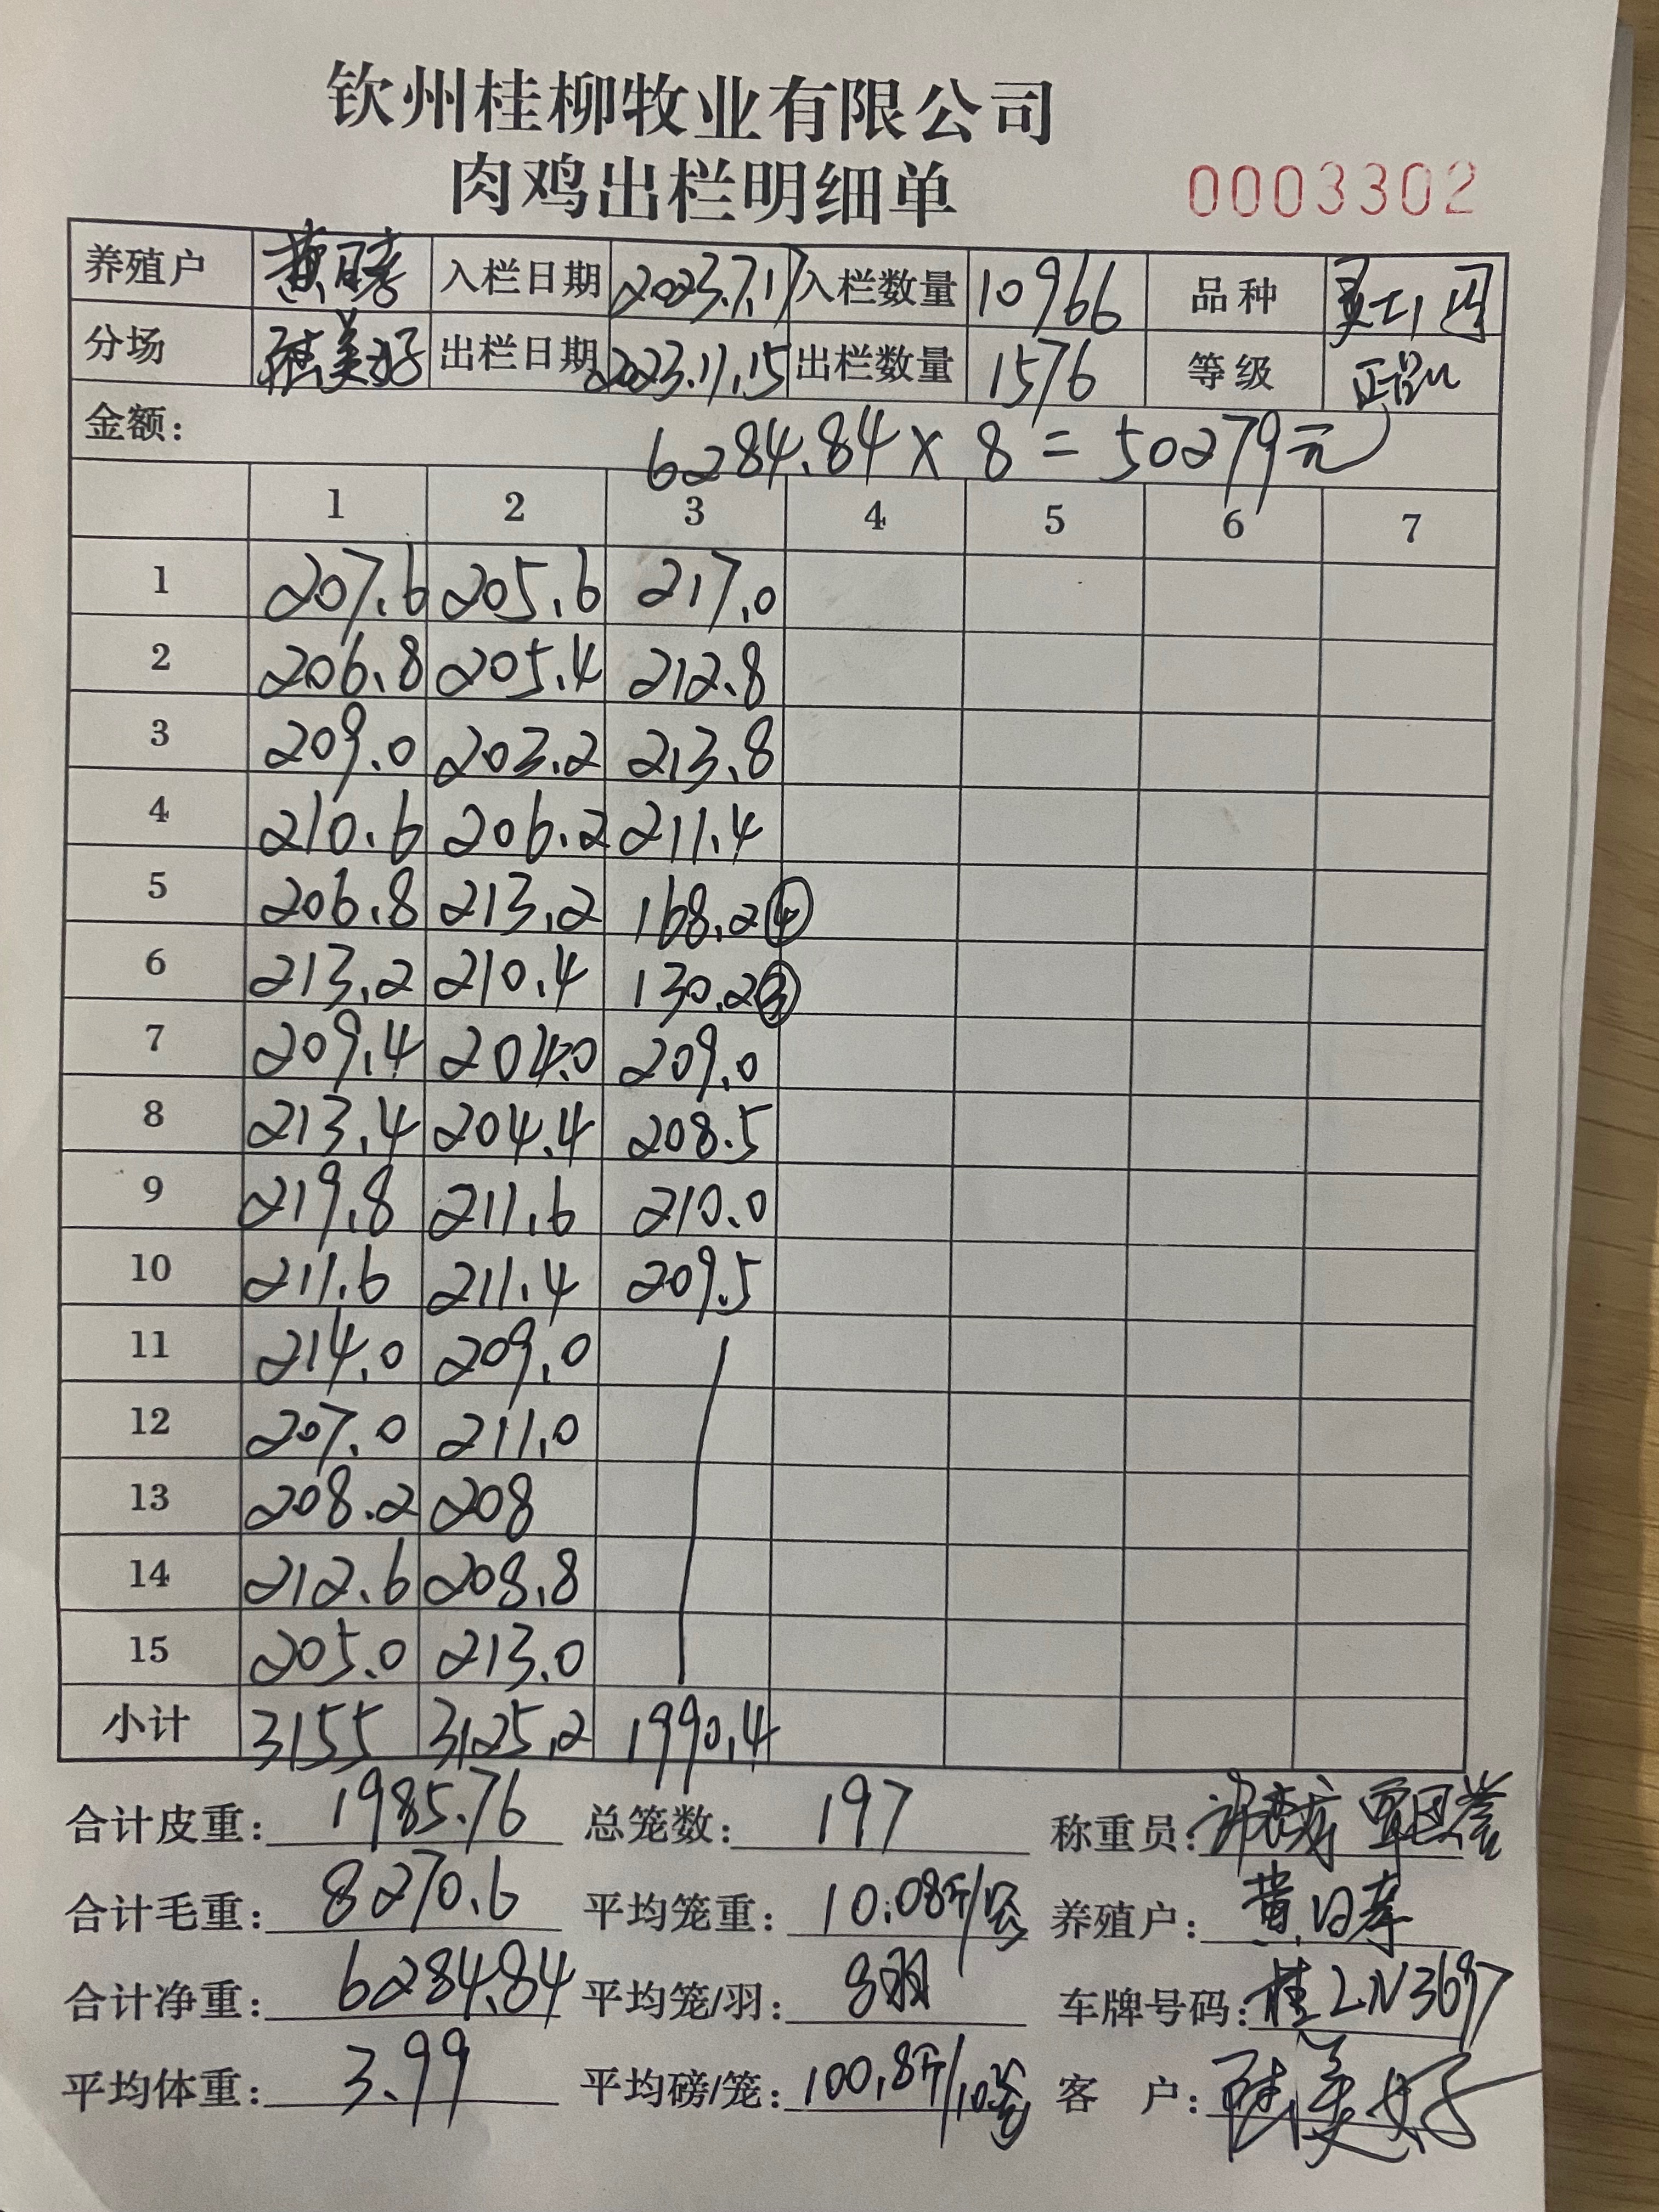 钦州桂柳牧业有限公司
肉鸡出栏明细单 0003302
养殖户 入栏日期 2023.7.17 入栏数量 10966 品种
分场 陆美好 出栏日期 2023.11.15 出栏数量 1576 等级
金额: 6284.84×8=50279元
1 2 3 4 5 6 7
1 207.6 205.6 217.0
2 206.8 205.4 212.8
3 209.0 203.2 213.8
4 210.6 206.2 211.4
5 206.8 213.2 168.2④
6 213.2 210.4 130.2③
7 209.4 204.0 209.0
8 213.4 204.4 208.5
9 219.8 211.6 210.0
10 211.6 211.4 209.5
11 214.0 209.0
12 207.0 211.0
13 208.2 208
14 212.6 208.8
15 205.0 213.0
小计 3155 3125.2 1990.4
合计皮重: 1985.76 总笼数: 197 称重员:
合计毛重: 8270.6 平均笼重: 10.08斤/笼 养殖户:
合计净重: 6284.84 平均笼/羽: 8羽 车牌号码: 桂LN3697
平均体重: 3.99 平均磅/笼: 100.8斤/10笼 客 户: 陆美好